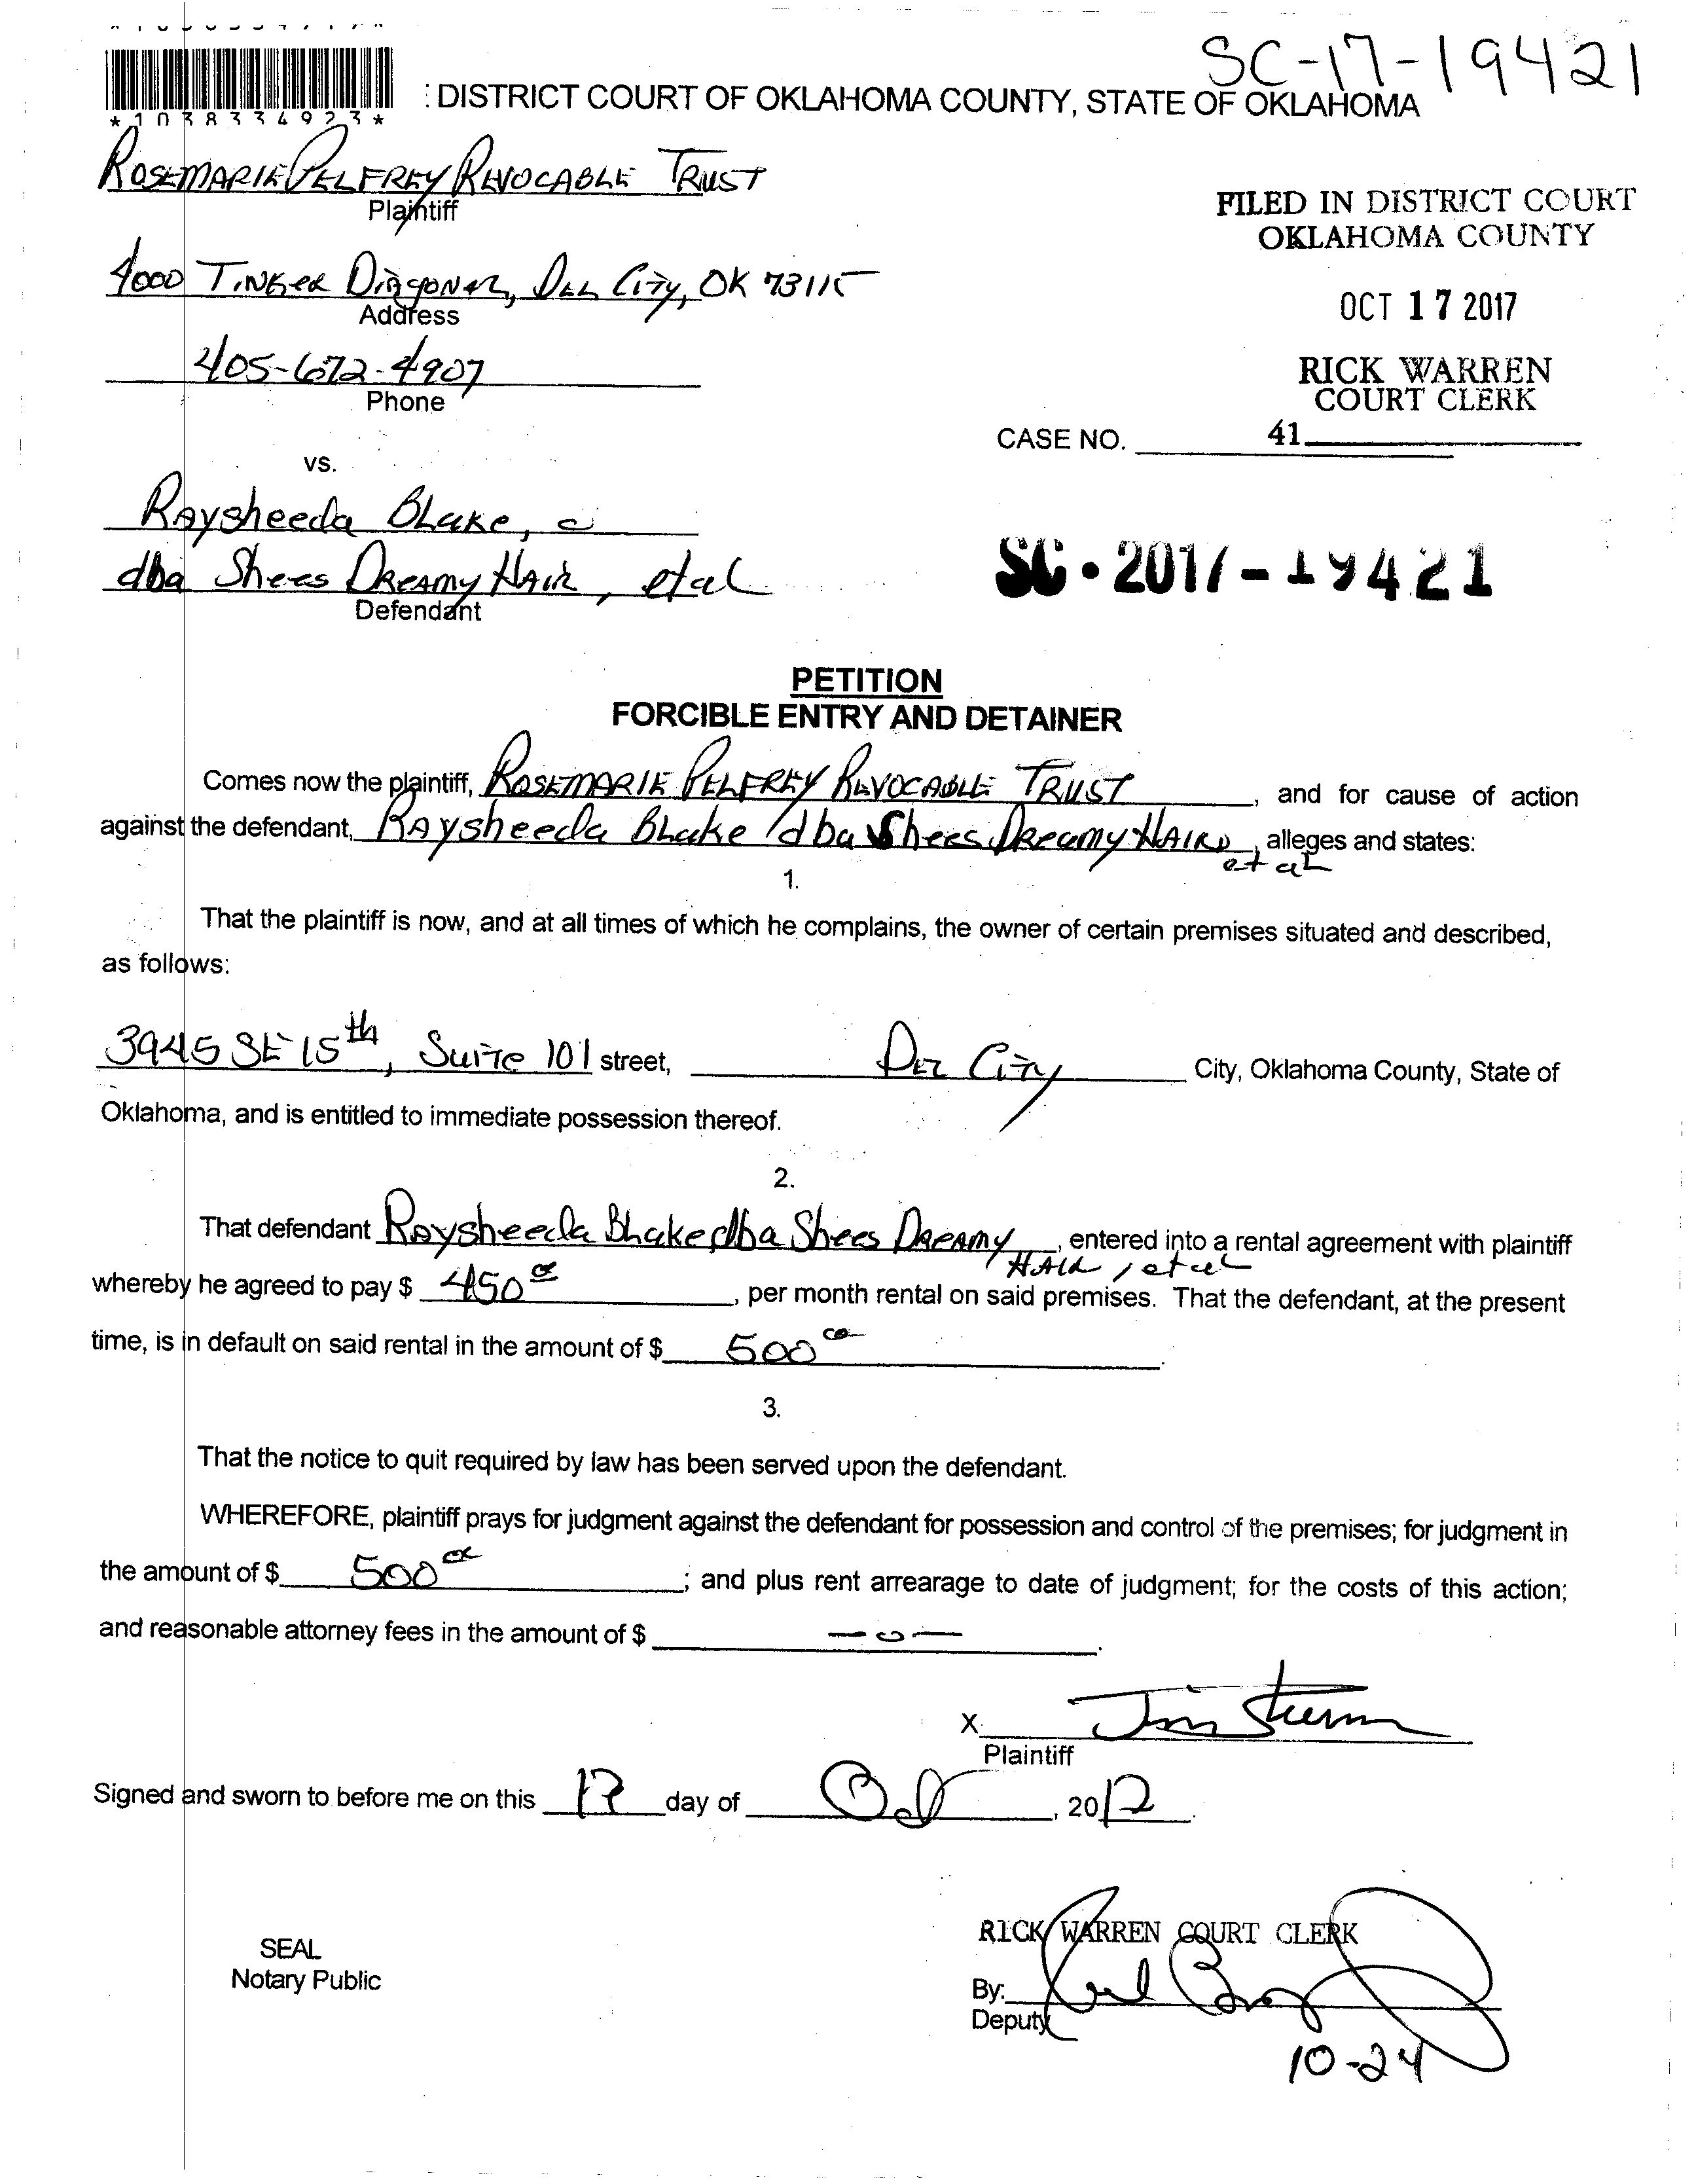 SC-17-19421
*1038334923*
DISTRICT COURT OF OKLAHOMA COUNTY, STATE OF OKLAHOMA
ROSEMARIE PELFREY REVOCABLE TRUST
Plaintiff
FILED IN DISTRICT COURT
OKLAHOMA COUNTY
4000 TINKER DIAGONAL, DEL CITY, OK 73115
Address
OCT 17 2017
405-672-4907
Phone
RICK WARREN
COURT CLERK
CASE NO. 41
vs.
Raysheeda Blake,
dba Shees DREAMY HAIR, et al
Defendant
SC-2017-19421
PETITION
FORCIBLE ENTRY AND DETAINER
Comes now the plaintiff, ROSEMARIE PELFREY REVOCABLE TRUST, and for cause of action
against the defendant, Raysheeda Blake / dba Shees Dreamy HAIR, alleges and states:
et al
1.
That the plaintiff is now, and at all times of which he complains, the owner of certain premises situated and described,
as follows:
3945 SE 15th, Suite 101 street, DEL CITY City, Oklahoma County, State of
Oklahoma, and is entitled to immediate possession thereof.
2.
That defendant Raysheeda Blake dba Shees DREAMY, entered into a rental agreement with plaintiff
HAIR, et al
whereby he agreed to pay $ 450 00, per month rental on said premises. That the defendant, at the present
time, is in default on said rental in the amount of $ 500 00.
3.
That the notice to quit required by law has been served upon the defendant.
WHEREFORE, plaintiff prays for judgment against the defendant for possession and control of the premises; for judgment in
the amount of $ 500 00; and plus rent arrearage to date of judgment; for the costs of this action;
and reasonable attorney fees in the amount of $ -0-.
X
Plaintiff
Signed and sworn to before me on this 17 day of Oct, 2017.
RICK WARREN COURT CLERK
SEAL
Notary Public
By:
Deputy
10-24